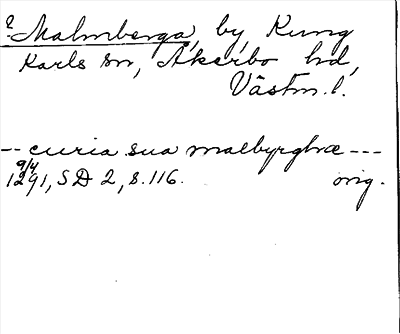 ? Malmberga, by, Kung
Karls sn, Åkerbo hd,
Västm. l.
-- curia sua malbyrghæ ---
9/4
1291, SD 2, s. 116. orig.